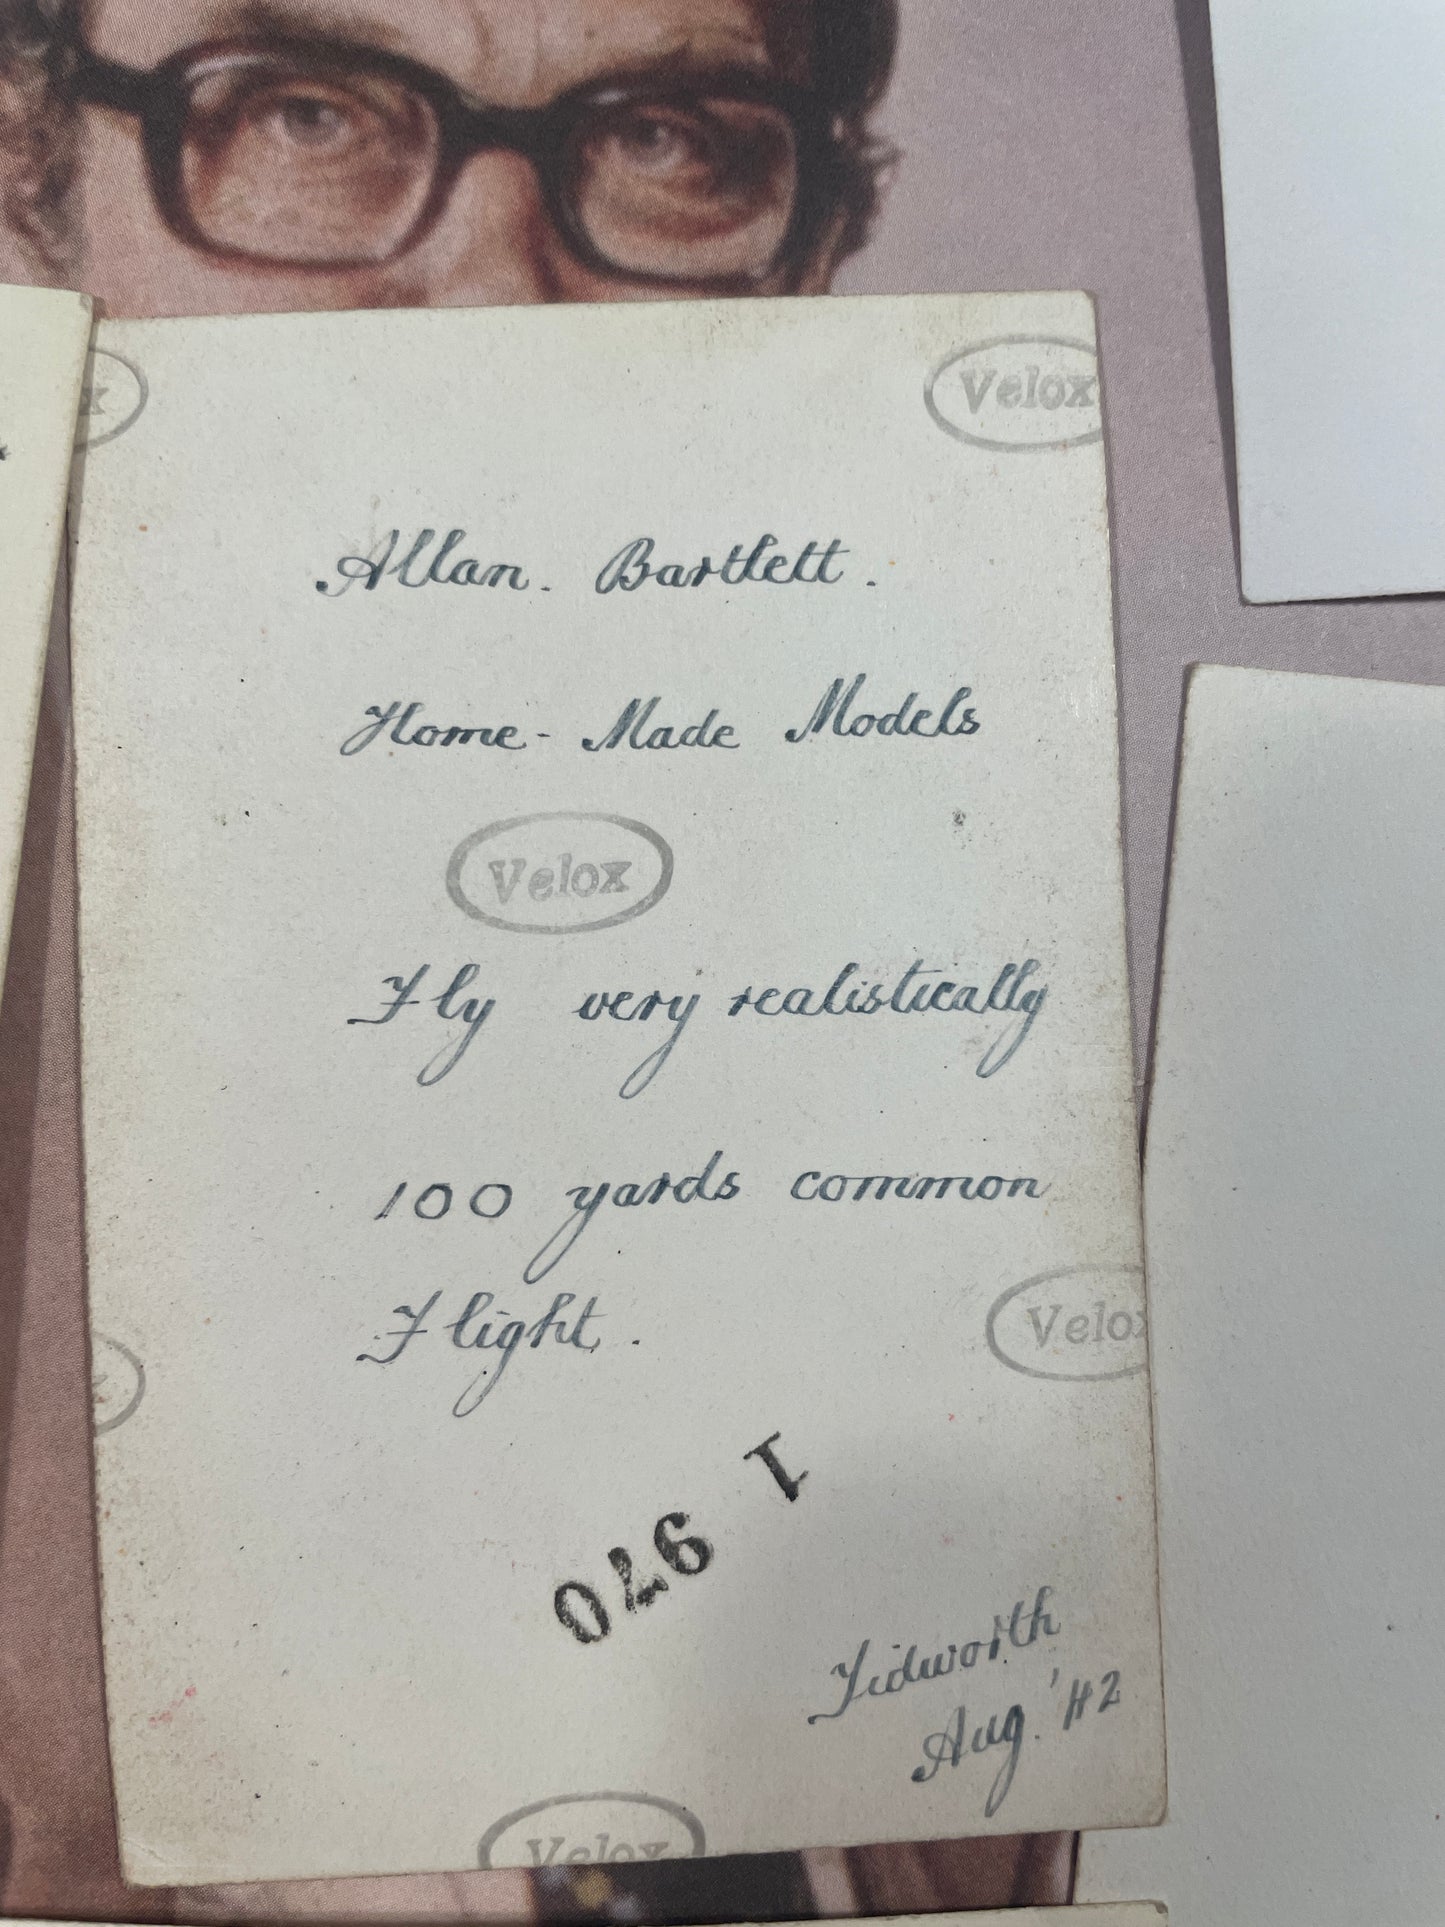 x
Velox
Allan. Bartlett.
Home-Made Models
Velox
Fly very realistically
100 yards common
Flight.
Velox
1 970
Tidworth
Aug. '42
Velox